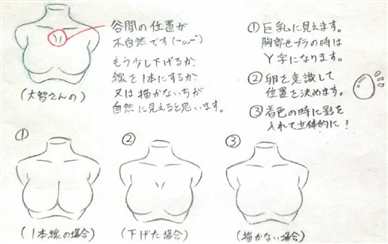 谷間の位置が
不自然です(´-ω-`)
もう少し下げるか
線を1本にするか
又は描かない方が
自然に見えると思います。
①巨乳に見えます。
Y字になります。
②卵を意識して
位置を決めます。
③着色の時に影を
入れて立体的に!
①
②
③
(1本線の場合)
(下げた場合)
(描かない場合)